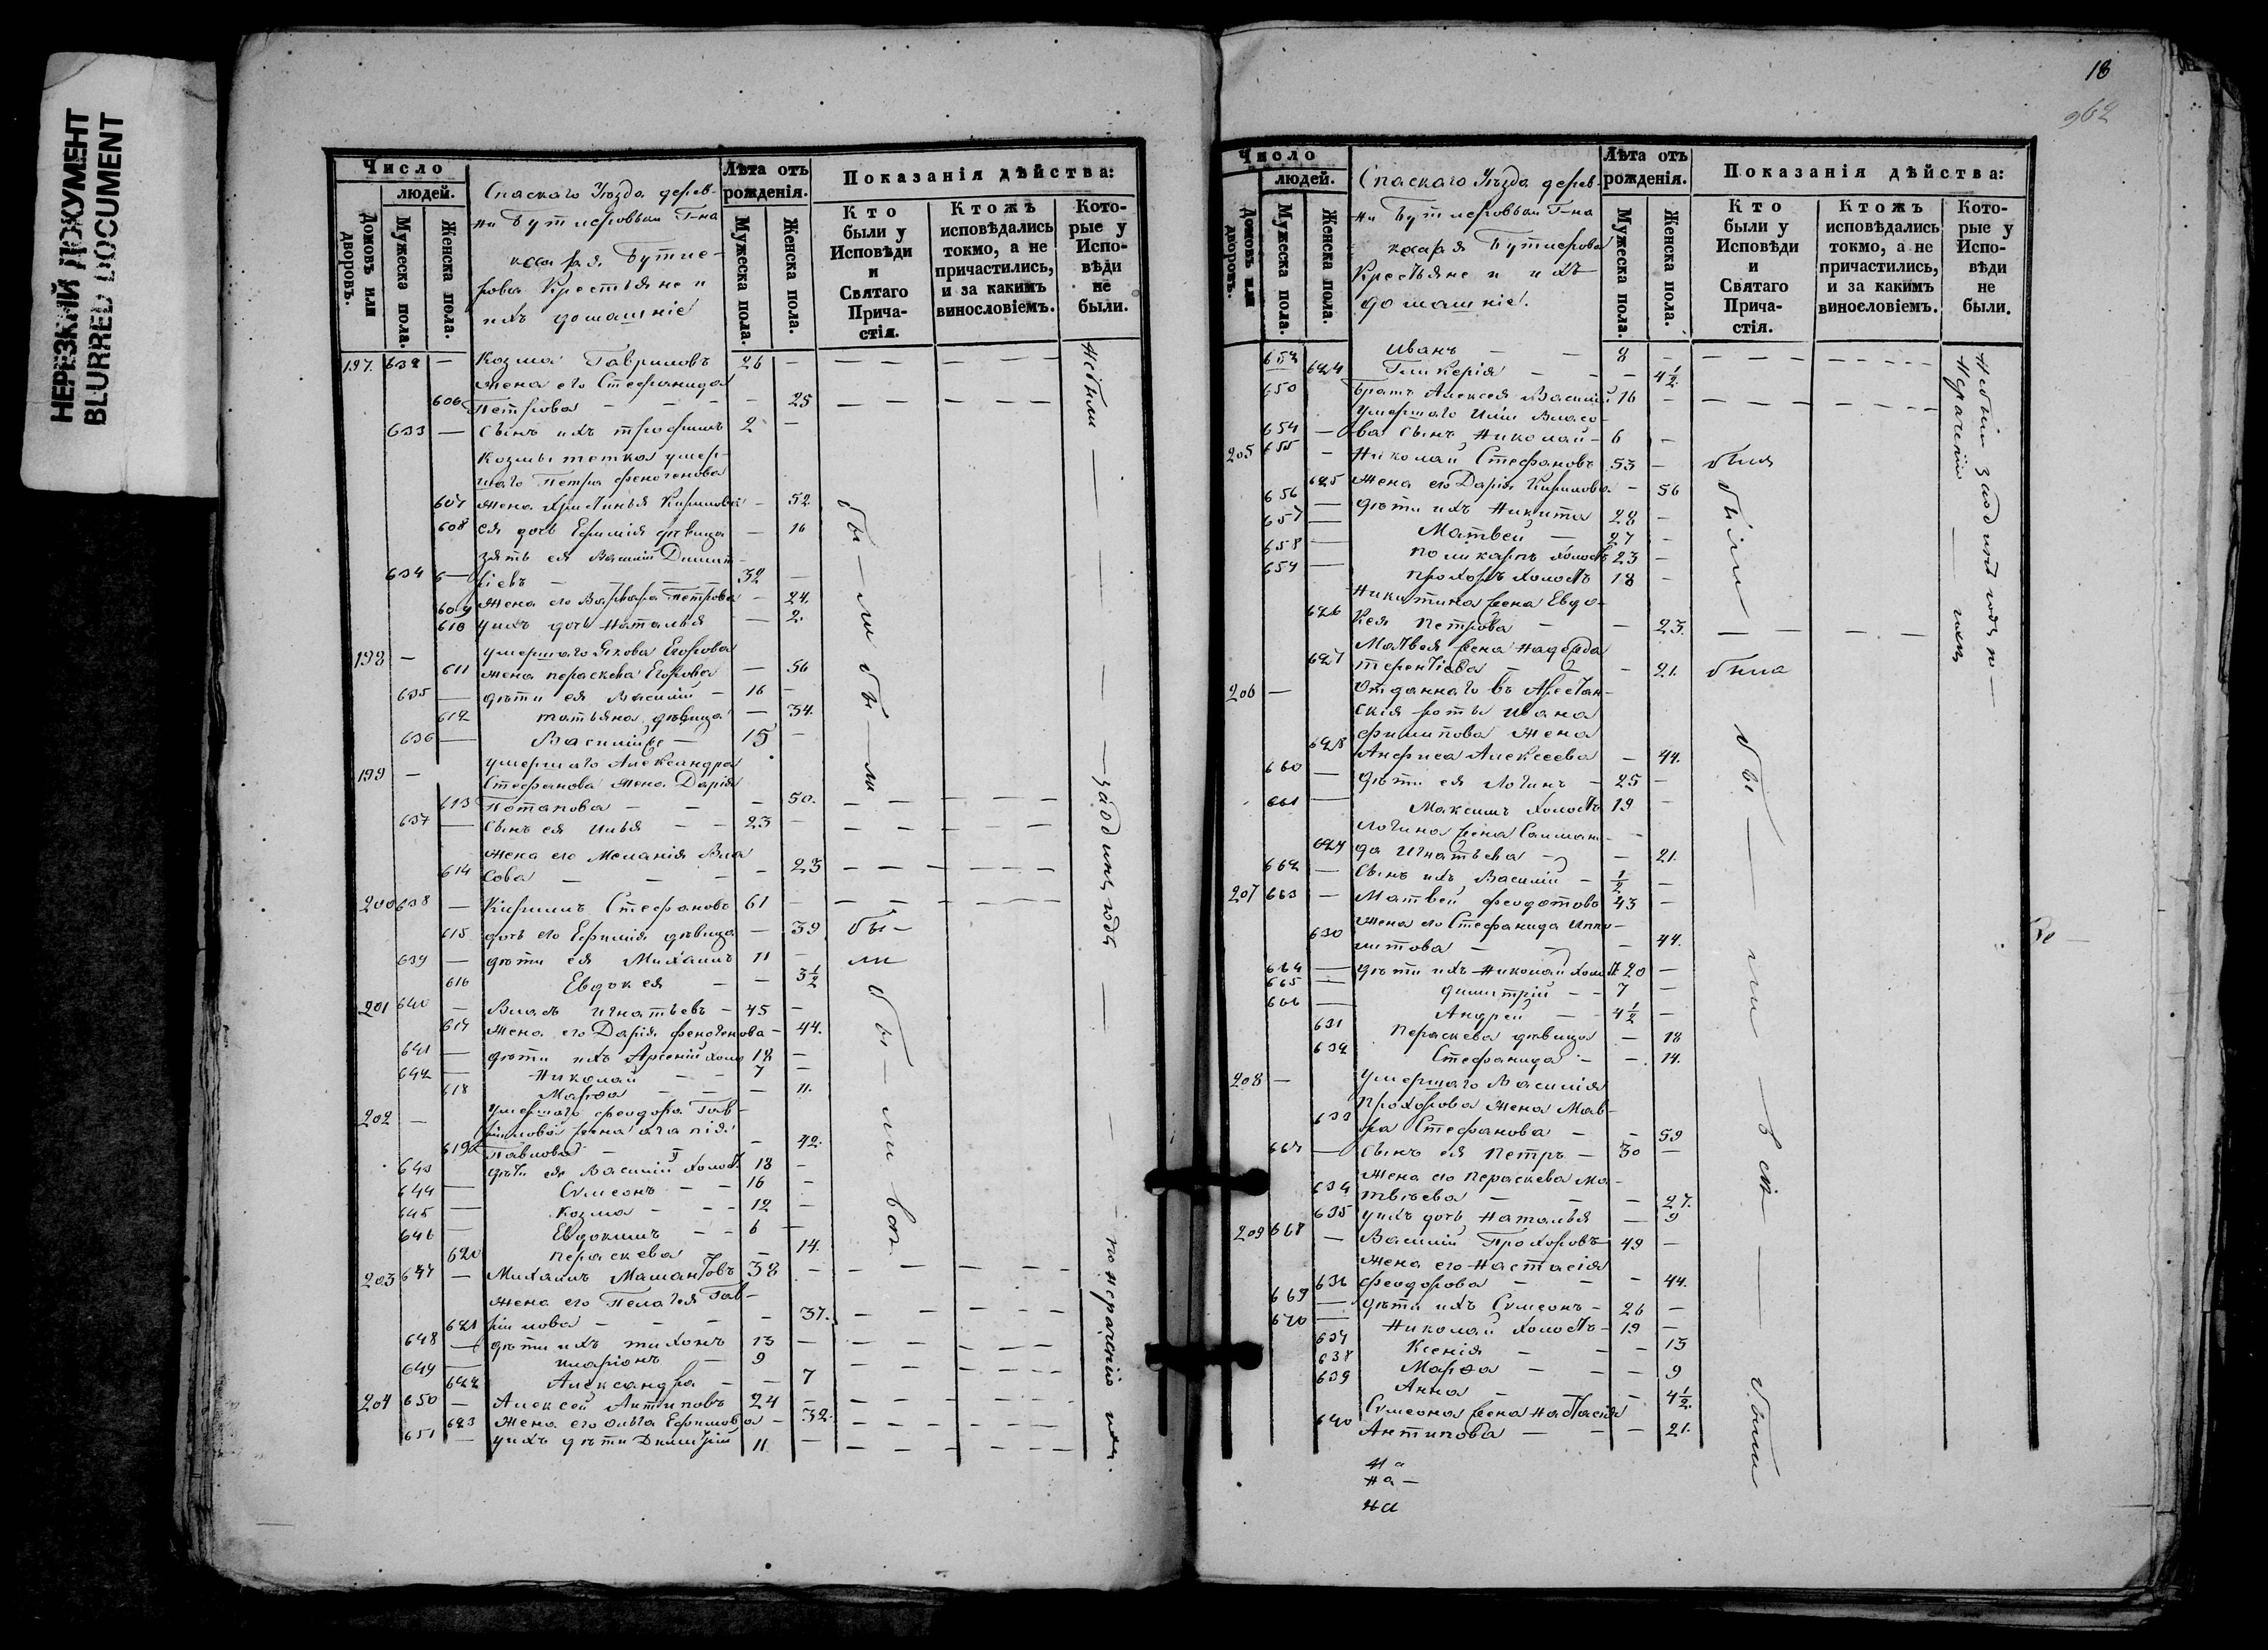 НЕРЕЗКИЙ ДОКУМЕНТ
BLURRED DOCUMENT
Число
людей.
Домовъ или дворовъ.
Мужеска пола.
Женска пола.
Спаскаго Уѣзда дерев-
ни Бутлеровки Г-на
Бутле-
рова Крестьяне и
ихъ домашніе
Лѣта отъ рожденія.
Мужеска пола.
Женска пола.
Показанія дѣйства:
Кто были у Исповѣди и Святаго Причастія.
Ктожъ исповѣдались токмо, а не причастились, и за какимъ винословіемъ.
Которые у Исповѣди не были.
197. 632 — Козма Гавриловъ 26 —
жена его Стефанида
606 Петрова — — 25
633 — сынъ ихъ Трофимъ 2 —
Козмы тетка умер-
шаго Петра Феногенова
607 жена Христинья Кирилова — 52
608 ея дочь Ефимія дѣвица — 16
зять ея Василій Димит-
634 ріевъ — 32 —
609 жена его Варвара Петрова — 24.
610 у нихъ дочь Наталья — 2.
198 — умершаго Якова Егорова
611 жена Параскева Егорова — 56
635 — дѣти ея Василій — 16 —
612 Татьяна дѣвица — 34.
636 — Василій — 15 —
199 — умершаго Александра
Стефанова жена Дарія
613 Потапова — — 50.
637 — сынъ ея Илья — 23 —
жена его Меланія Вла
614 сова — — 23
200 638 — Кирилъ Стефановъ 61 —
615 дочь его Ефимія дѣвица — 39
639 — дѣти ея Михаилъ 11 —
616 Евдокея — 3 1/2
201 640 — Власъ Игнатьевъ — 45 —
617 жена его Дарія Феногенова — 44.
641 — дѣти ихъ Арсеній холо 18 —
642 — Николай — 7 —
618 Марѳа — — 11.
202 — умершаго Феодора Гав-
рилова жена Агапія
619 Павлова — — 42.
643 дѣти ея Василій холост 18 —
644 — Сѵмеонъ — 16 —
645 — Козма — 12 —
646 — Евдокимъ — 6 —
620 Параскева — — 14.
203 647 — Михаилъ Малантьевъ 38 —
жена его Пелагея Гав-
621 рилова — — 37.
648 — дѣти ихъ Тихонъ 13 —
649 — Иларіонъ — 9
622 Александра — — 7
204 650 — Алексей Антиповъ 24 —
623 жена его Ольга Ефимова — 32.
651 — у нихъ дѣти Димитрій 11 —
были
были
были
были всѣ
не были — за одинъ годъ — по нераченію
18
962
Число
людей.
Домовъ или дворовъ.
Мужеска пола.
Женска пола.
Спаскаго Уѣзда дерев-
ни Бутлеровки Г-на
Бутлерова
Крестьяне и ихъ
домашніе.
Лѣта отъ рожденія.
Мужеска пола.
Женска пола.
Показанія дѣйства:
Кто были у Исповѣди и Святаго Причастія.
Ктожъ исповѣдались токмо, а не причастились, и за какимъ винословіемъ.
Которые у Исповѣди не были.
652 Иванъ — 8 —
624 Гликерія — — 4 1/2.
Братъ Алексея Василій 16 —
умершаго Иліи Власо-
654 — ва сынъ Николай — 6 —
205 655 — Николай Стефановъ 53 — былъ
625 жена его Дарія Кирилова — 56
656 — дѣти ихъ Никита 28 —
657 — Матвей — 27 —
658 — Поликарпъ холостъ 23 —
659 — Прохоръ холостъ 18 —
Никитина жена Евдо-
626 кея Петрова — — 23.
Матвея жена Надежда
627 Терентіева — — 21. была
206 — Отданнаго въ Арестан-
скія роты Ивана
Филипова жена
628 Анфиса Алексеева — 44.
660 — дѣти ея Логинъ — 25 —
661 — Максимъ холостъ 19 —
Логина жена Саломани-
629 да Игнатьева — — 21.
662 — сынъ ихъ Василій — 1/2 —
207 663 — Матвей Феодотовъ 43 —
жена его Стефанида Иппо-
630 литова — — 44.
664 — дѣти ихъ Николай холост 20 —
665 — Димитрій — 7 —
666 — Андрей — 4 1/2 —
631 Параскева дѣвица — 18
632 Стефанида — — 14.
208 — умершаго Василія
Прохорова жена Мав-
633 ра Стефанова — — 59
667 — сынъ ея Петръ — 30 —
жена его Параскева Ма-
634 твѣева — — 27.
635 у нихъ дочь Наталья — 9
209 668 — Василій Прохоровъ 49 —
жена его Настасія
636 Феодорова — — 44.
669 — дѣти ихъ Сѵмеонъ — 26 —
670 — Николай холостъ — 19 —
637 Ксенія — — 13
638 Марѳа — — 9
639 Анна — — 4 1/2.
Сѵмеона жена Настасія
640 Антипова — — 21.
были
были всѣ были
не были за одинъ годъ по нераченію
на
на —
на